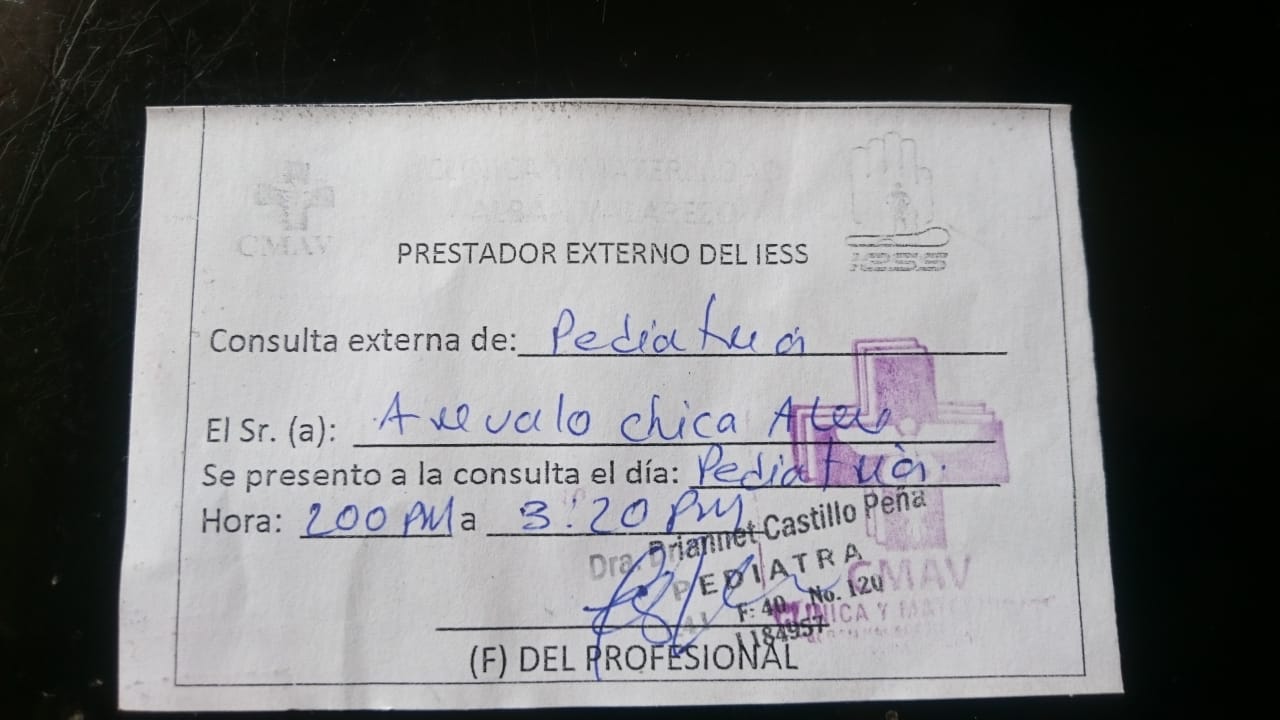 CLINICA Y MATERNIDAD
ALBAN VALAREZO
CMAV
IESS
PRESTADOR EXTERNO DEL IESS
Consulta externa de: Pediatria
El Sr. (a): Arevalo chica
Se presento a la consulta el día: Pediatria.
Hora: 200 PM a 3:20 PM
Dra. Briannet Castillo Peña
PEDIATRA
F: 40 No. 120
1184957
CMAV
CLINICA Y MATERNIDAD
(F) DEL PROFESIONAL